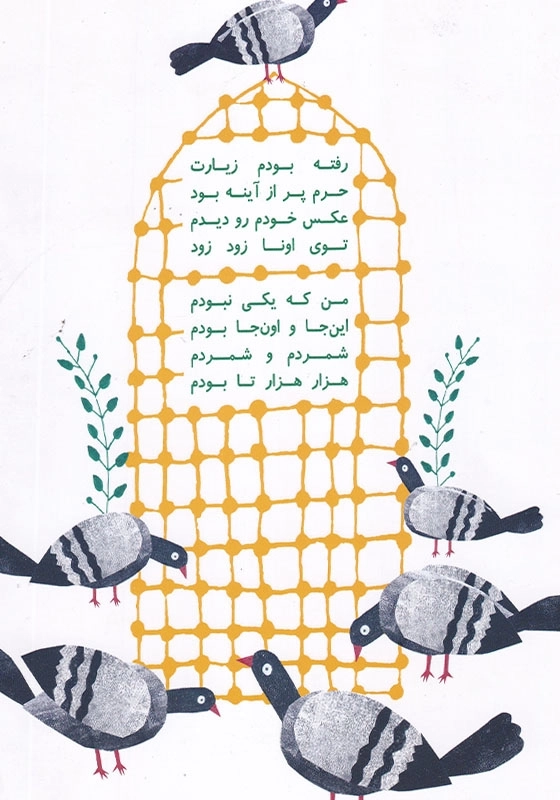 رفته بودم زیارت
حرم پر از آینه بود
عکس خودم رو دیدم
توی اونا زود زود
من که یکی نبودم
این‌جا و اون‌جا بودم
شمردم و شمردم
هزار هزار تا بودم